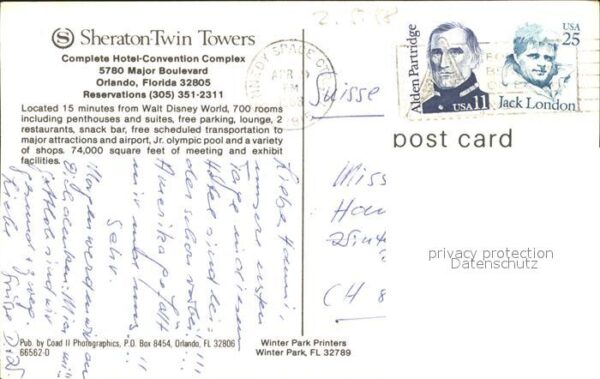 Sheraton-Twin Towers
Complete Hotel-Convention Complex
5780 Major Boulevard
Orlando, Florida 32805
Reservations (305) 351-2311
Located 15 minutes from Walt Disney World, 700 rooms
including penthouses and suites, free parking, lounge, 2
restaurants, snack bar, free scheduled transportation to
major attractions and airport, Jr. olympic pool and a variety
of shops. 74,000 square feet of meeting and exhibit
facilities.
Alden Partridge
USA 11
USA
25
Jack London
SPACE
APR
PM
Suisse
post card
Miss
CH 8
privacy protection
Datenschutz
unsere ersten
Tage in diesem
Hotel sind
schon vorbei!!!
Amerika gefällt
sehr.
Morgen werden wir an
Dich denken.
sind wir
gesund
Liebe Grüße
Pub. by Coad II Photographics, P.O. Box 8454, Orlando, FL 32806
66562-D
Winter Park Printers
Winter Park, FL 32789